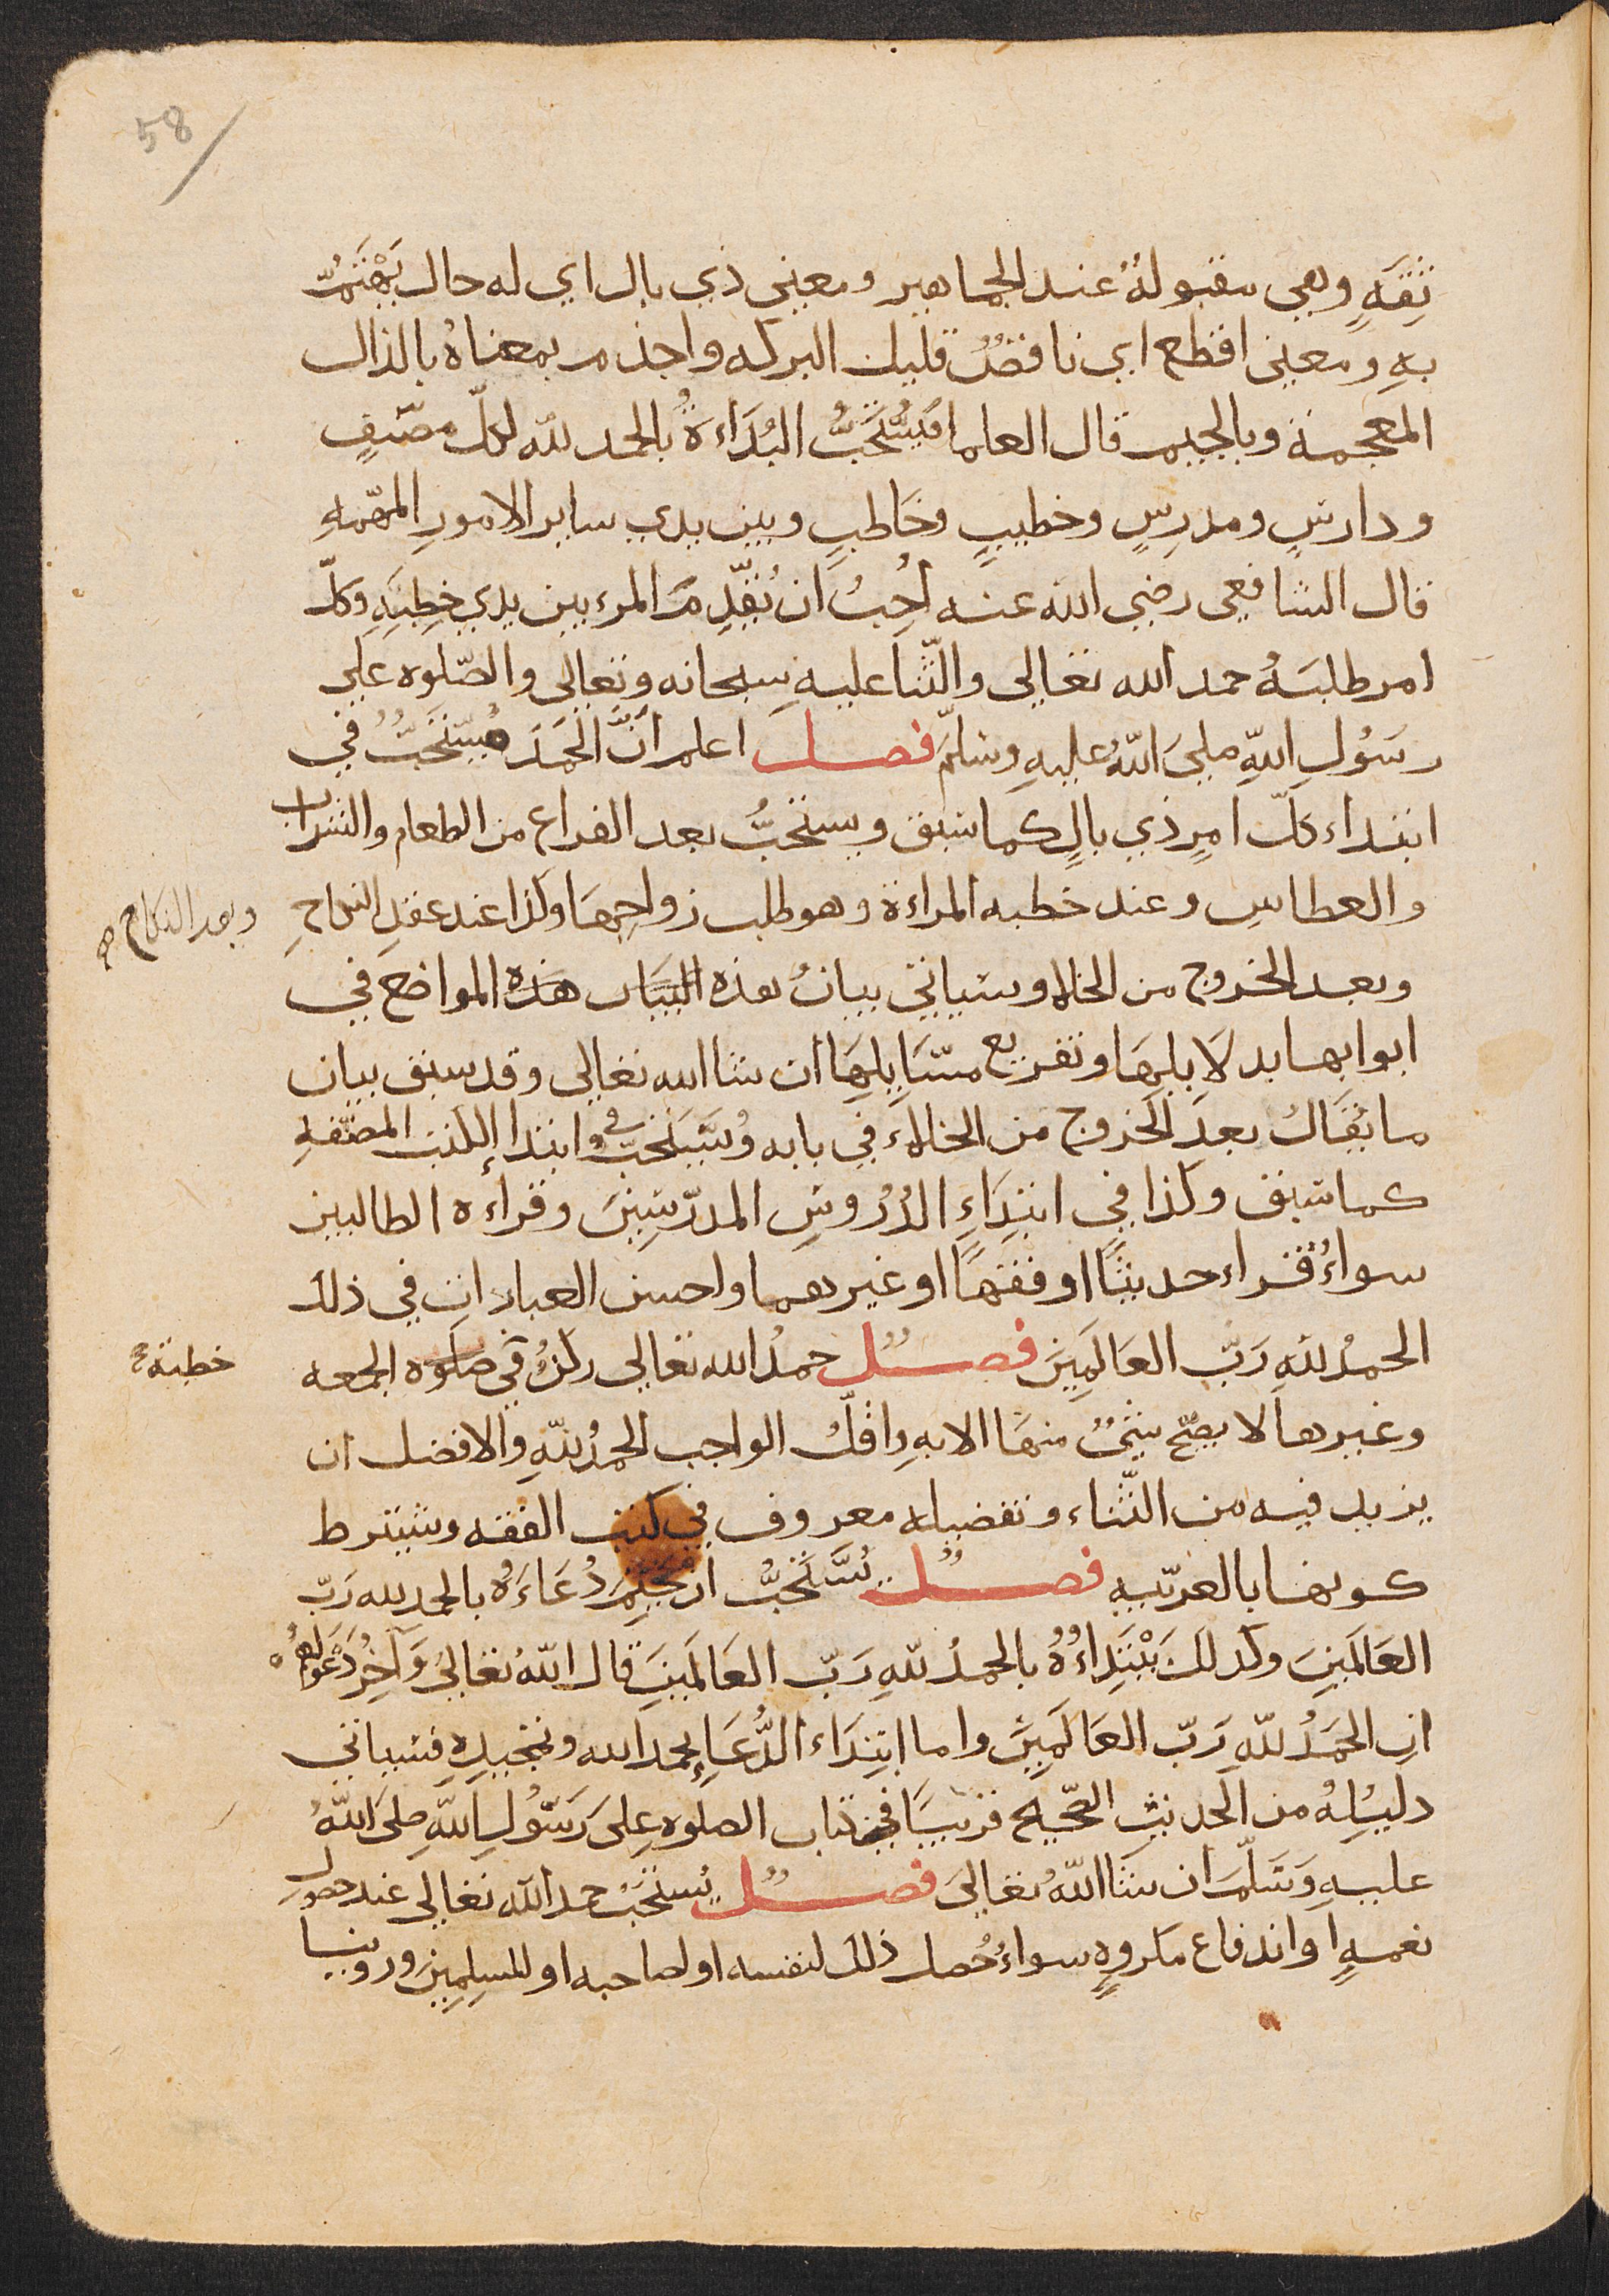 58
ثِقَةٍ وهي مقبولةٌ عند الجماهير ومعنى ذي بال اي له حال يَهْتَمُّ
بهِ ومعنى اقطع اي ناقصٌ قليل البركه واجذم بمعناهُ بالذال
المعجمة وبالجيم قال العلما فيُسْتَحَبُّ البُدَاءةُ بالحمد لله لكلّ مصنّفٍ
ودارسٍ ومدرسٍ وخطيبٍ وخَاطبٍ وبين يدي ساير الامورِ المهّمهِ
قال الشافعى رضي الله عنه اُحِبُ ان يُقدّمَ المرء بين يدي خِطبَتِهِ وكلّ
امر طلبَهُ حمد الله تعَالى والثّنا عليهِ سبحانه وتعَالى والصّلوه على
رسُولِ اللهِ صلىَ اللهُ عليهِ وسَلمّ فصل اعلم انَّ الحمَدَ مُستَحَبُّ في
ابتداء كلّ امرٍ ذي بالٍ كما سَبق ويستحَبُّ بعد الفراع من الطعام والشراب
والعطاسِ وعند خطبه المراءة وهو طلب زواجِهَا وكذا عند عقدِ النكاحِ
وبعد النكاح صح
وبعد الخروج من الخلا وسَياتي بيانُ هذه البيان هذه المواضع في
ابوابها بدلَايلِهَا وتفريع مسَايلِهَا ان شا الله تعَالى وقد سبق بيان
ما يُقَالُ بعدَ الخروج من الخلاء في بابه ويُستَحَبُّ في ابتدا الكتب المصنّفهِ
كما سَبق وكذا في ابتِدَاءِ الدُرُوسِ المدرّسِينَ وقراءه الطالبين
سواءٌ قراء حديثًا او فقهًا او غيرهما واحسن العباراتِ في ذلك
الحمدُ للهِ رَبّ العَالمِينَ فصل حمدُ الله تعَالى ركنٌ في صلوه الجمعه
خطبة
وغيرها لا يصّح شيٌ منهَا الا بهِ واقلّ الواجب الحمدُ للهِ والافضل ان
يزيد فيه من الثّناء وتفصيله معروف في كتب الفقه ويشترط
كونها بالعربّيهِ فصل يُسْتَحَبُّ ان يَختِمَ دُعَاءَهُ بالحمد لله رَبّ
العَالمَينَ وكذلك يَبْتَدِاءُهُ بالحمدُ للهِ رَبّ العَالمَينَ قال اللهُ تعَالىَ وَآخِرُ دَعْوَاهُم
انِ الحَمَدُ للهِ رَبّ العَالمَينَ واما ابتِدَاء الدُّعَاءِ بحمد الله وتمجيدِهِ فسياتي
دليلُهُ من الحديث الصّحيح قريبًا في كتاب الصلوهِ عِلىَ رَسُولِ اللهِ صلىَ اللهُ
عليهِ وَسَلّمَ ان شَا اللهُ تعَالىَ فصل يُستحَبُ حمد الله تعَالى عند حصُول
نعمهٍ او اندفاع مكروهٍ سواءٌ حُصل ذلك لنفسه او لصاحبه او للمسلِمِينَ وروينا